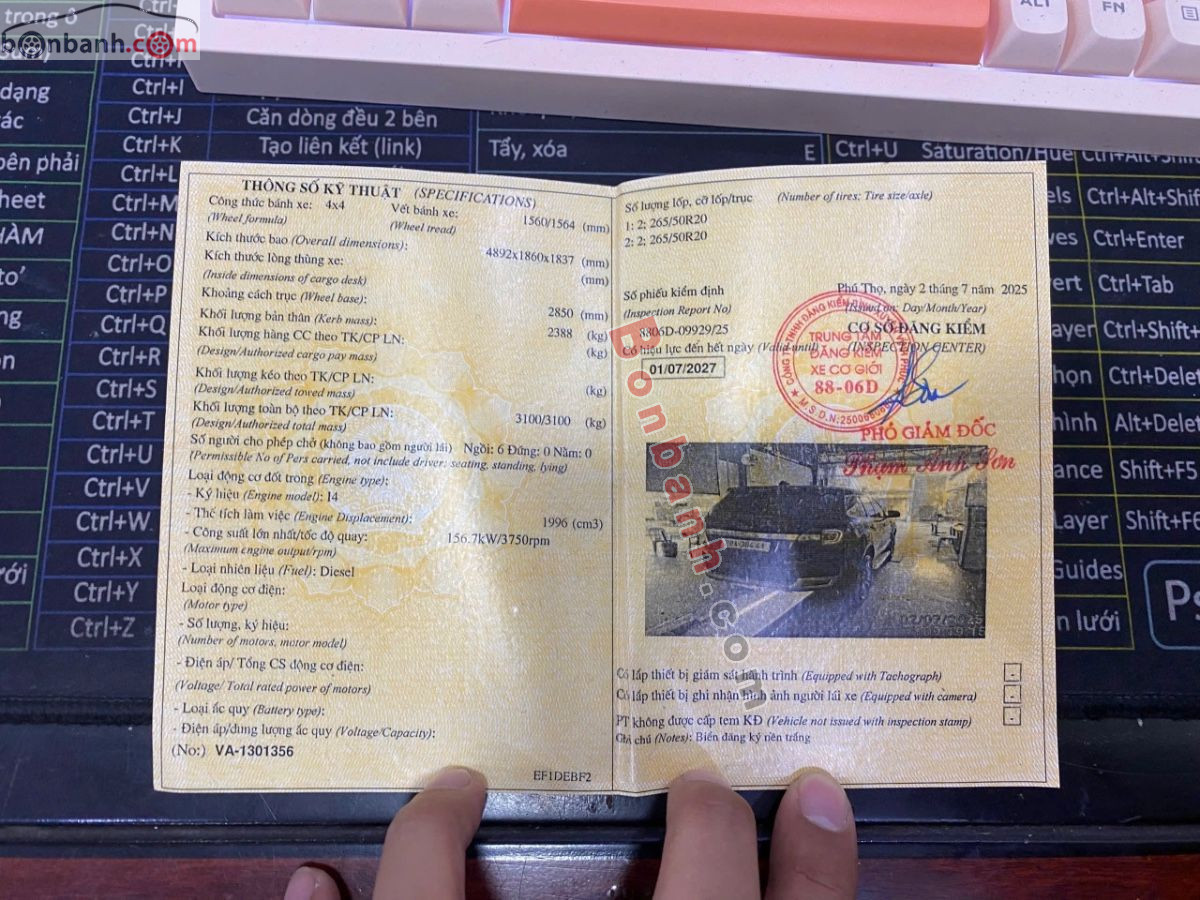 bonbanh.com
trong ô
dạng
ác
bên phải
sheet
HÀM
to’
ng
ười
Ctrl+I
Ctrl+J
Căn dòng đều 2 bên
Ctrl+K
Tạo liên kết (link)
Tẩy, xóa
E
Ctrl+U
Saturation/Hue
Ctrl+L
Ctrl+M
Ctrl+N
Ctrl+O
Ctrl+P
Ctrl+Q
Ctrl+R
Ctrl+S
Ctrl+T
Ctrl+U
Ctrl+V
Ctrl+W
Ctrl+X
Ctrl+Y
Ctrl+Z
ALT
FN
THÔNG SỐ KỸ THUẬT (SPECIFICATIONS)
Công thức bánh xe: 4x4 Vết bánh xe: 1560/1564 (mm)
(Wheel formula) (Wheel tread)
Kích thước bao (Overall dimensions): 4892x1860x1837 (mm)
Kích thước lòng thùng xe: (mm)
(Inside dimensions of cargo desk)
Khoảng cách trục (Wheel base): 2850 (mm)
Khối lượng bản thân (Kerb mass): 2388 (kg)
Khối lượng hàng CC theo TK/CP LN: (kg)
(Design/Authorized cargo pay mass)
Khối lượng kéo theo TK/CP LN: (kg)
(Design/Authorized towed mass)
Khối lượng toàn bộ theo TK/CP LN: 3100/3100 (kg)
(Design/Authorized total mass)
Số người cho phép chở (không bao gồm người lái) Ngồi: 6 Đứng: 0 Nằm: 0
(Permissible No of Pers carried, not include driver: seating, standing, lying)
Loại động cơ đốt trong (Engine type):
- Ký hiệu (Engine model): I4
- Thể tích làm việc (Engine Displacement): 1996 (cm3)
- Công suất lớn nhất/tốc độ quay: 156.7kW/3750rpm
(Maximum engine output/rpm)
- Loại nhiên liệu (Fuel): Diesel
Loại động cơ điện:
(Motor type)
- Số lượng, ký hiệu:
(Number of motors, motor model)
- Điện áp/ Tổng CS động cơ điện:
(Voltage/ Total rated power of motors)
- Loại ắc quy (Battery type):
- Điện áp/dung lượng ắc quy (Voltage/Capacity):
(No:) VA-1301356
EF1DEBF2
Số lượng lốp, cỡ lốp/trục (Number of tires; Tire size/axle)
1: 2; 265/50R20
2: 2; 265/50R20
Số phiếu kiểm định
(Inspection Report No)
8806D-09929/25
Có hiệu lực đến hết ngày (Valid until)
01/07/2027
Phú Thọ, ngày 2 tháng 7 năm 2025
(Issued on: Day/Month/Year)
CƠ SỞ ĐĂNG KIỂM
(INSPECTION CENTER)
TRUNG TÂM
ĐĂNG KIỂM
XE CƠ GIỚI
88-06D
PHÓ GIÁM ĐỐC
Phạm Anh Sơn
Bonbanh.com
02/07/2025
Có lắp thiết bị giám sát hành trình (Equipped with Tachograph) -
Có lắp thiết bị ghi nhận hình ảnh người lái xe (Equipped with camera) -
PT không được cấp tem KĐ (Vehicle not issued with inspection stamp) -
Ghi chú (Notes): Biển đăng ký nền trắng
Ctrl+Alt+Shift
Ctrl+Enter
Ctrl+Tab
Layer Ctrl+Shift+
Ctrl+Delet
Alt+Delet
Shift+F5
Layer Shift+F
Guides
n lưới
Ps